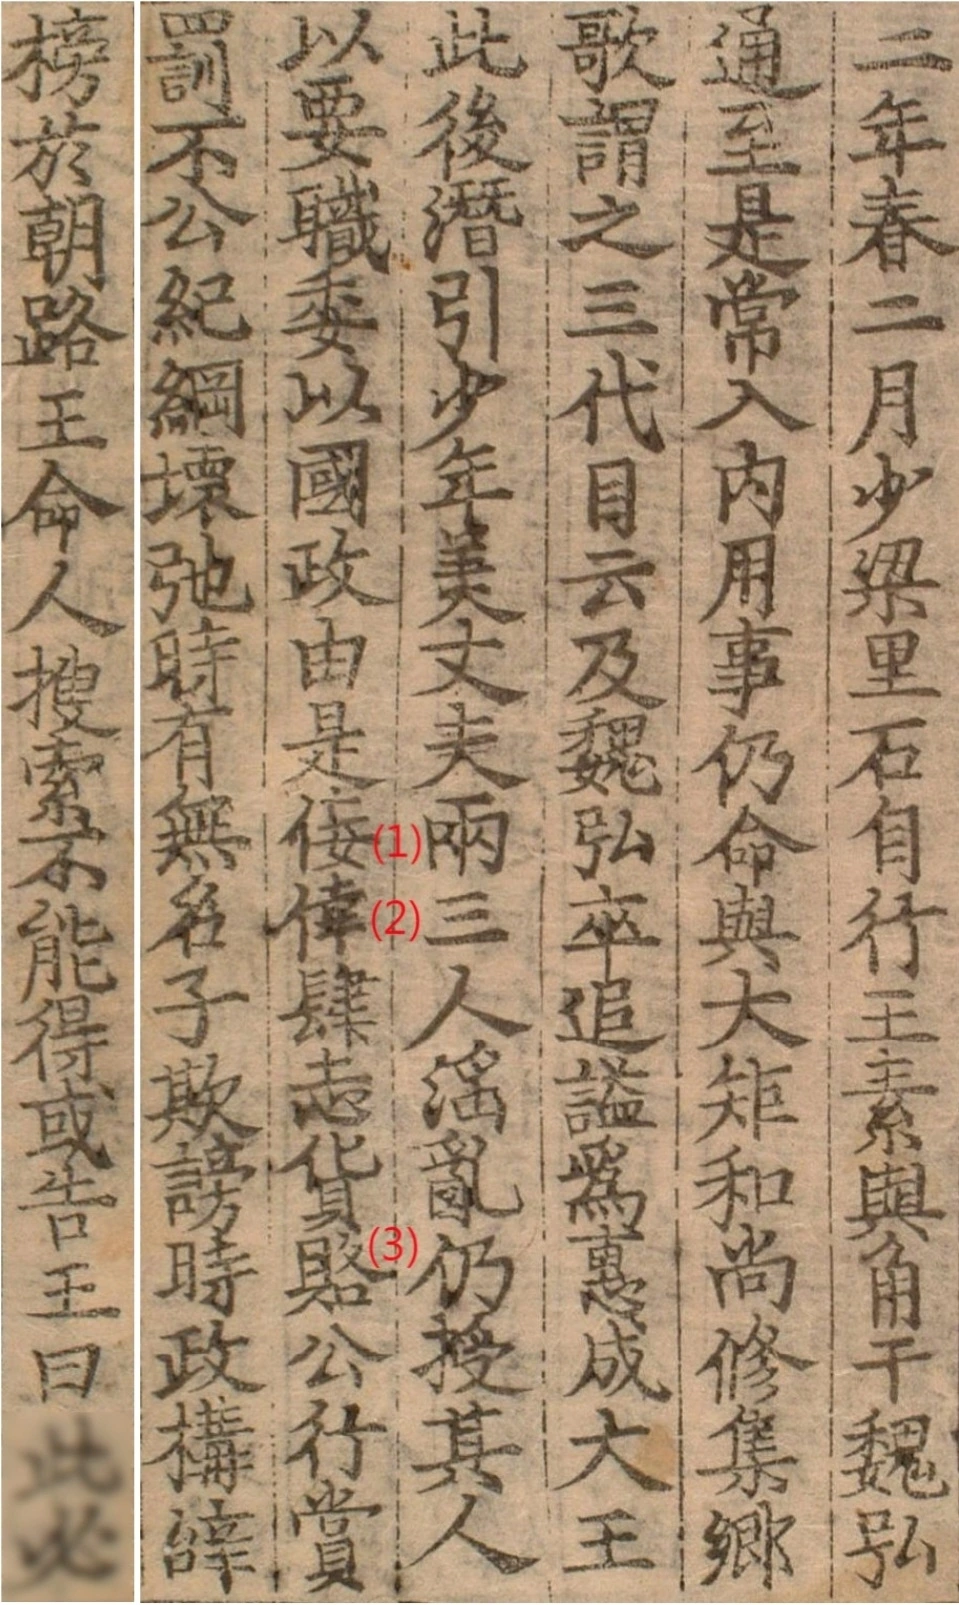 二年春二月少梁里石自行王素與角干魏弘
通至是常入内用事仍命與大矩和尚修集鄉
歌謂之三代目云及魏弘卒追謚爲惠成大王
此後潛引少年美丈夫兩三人淫亂仍授其人
(1)
(2)
(3)
以要職委以國政由是佞倖肆志貨賂公行賞
罰不公紀綱壞弛時有無名子欺謗時政構辭
榜於朝路王命人搜索不能得或告王曰